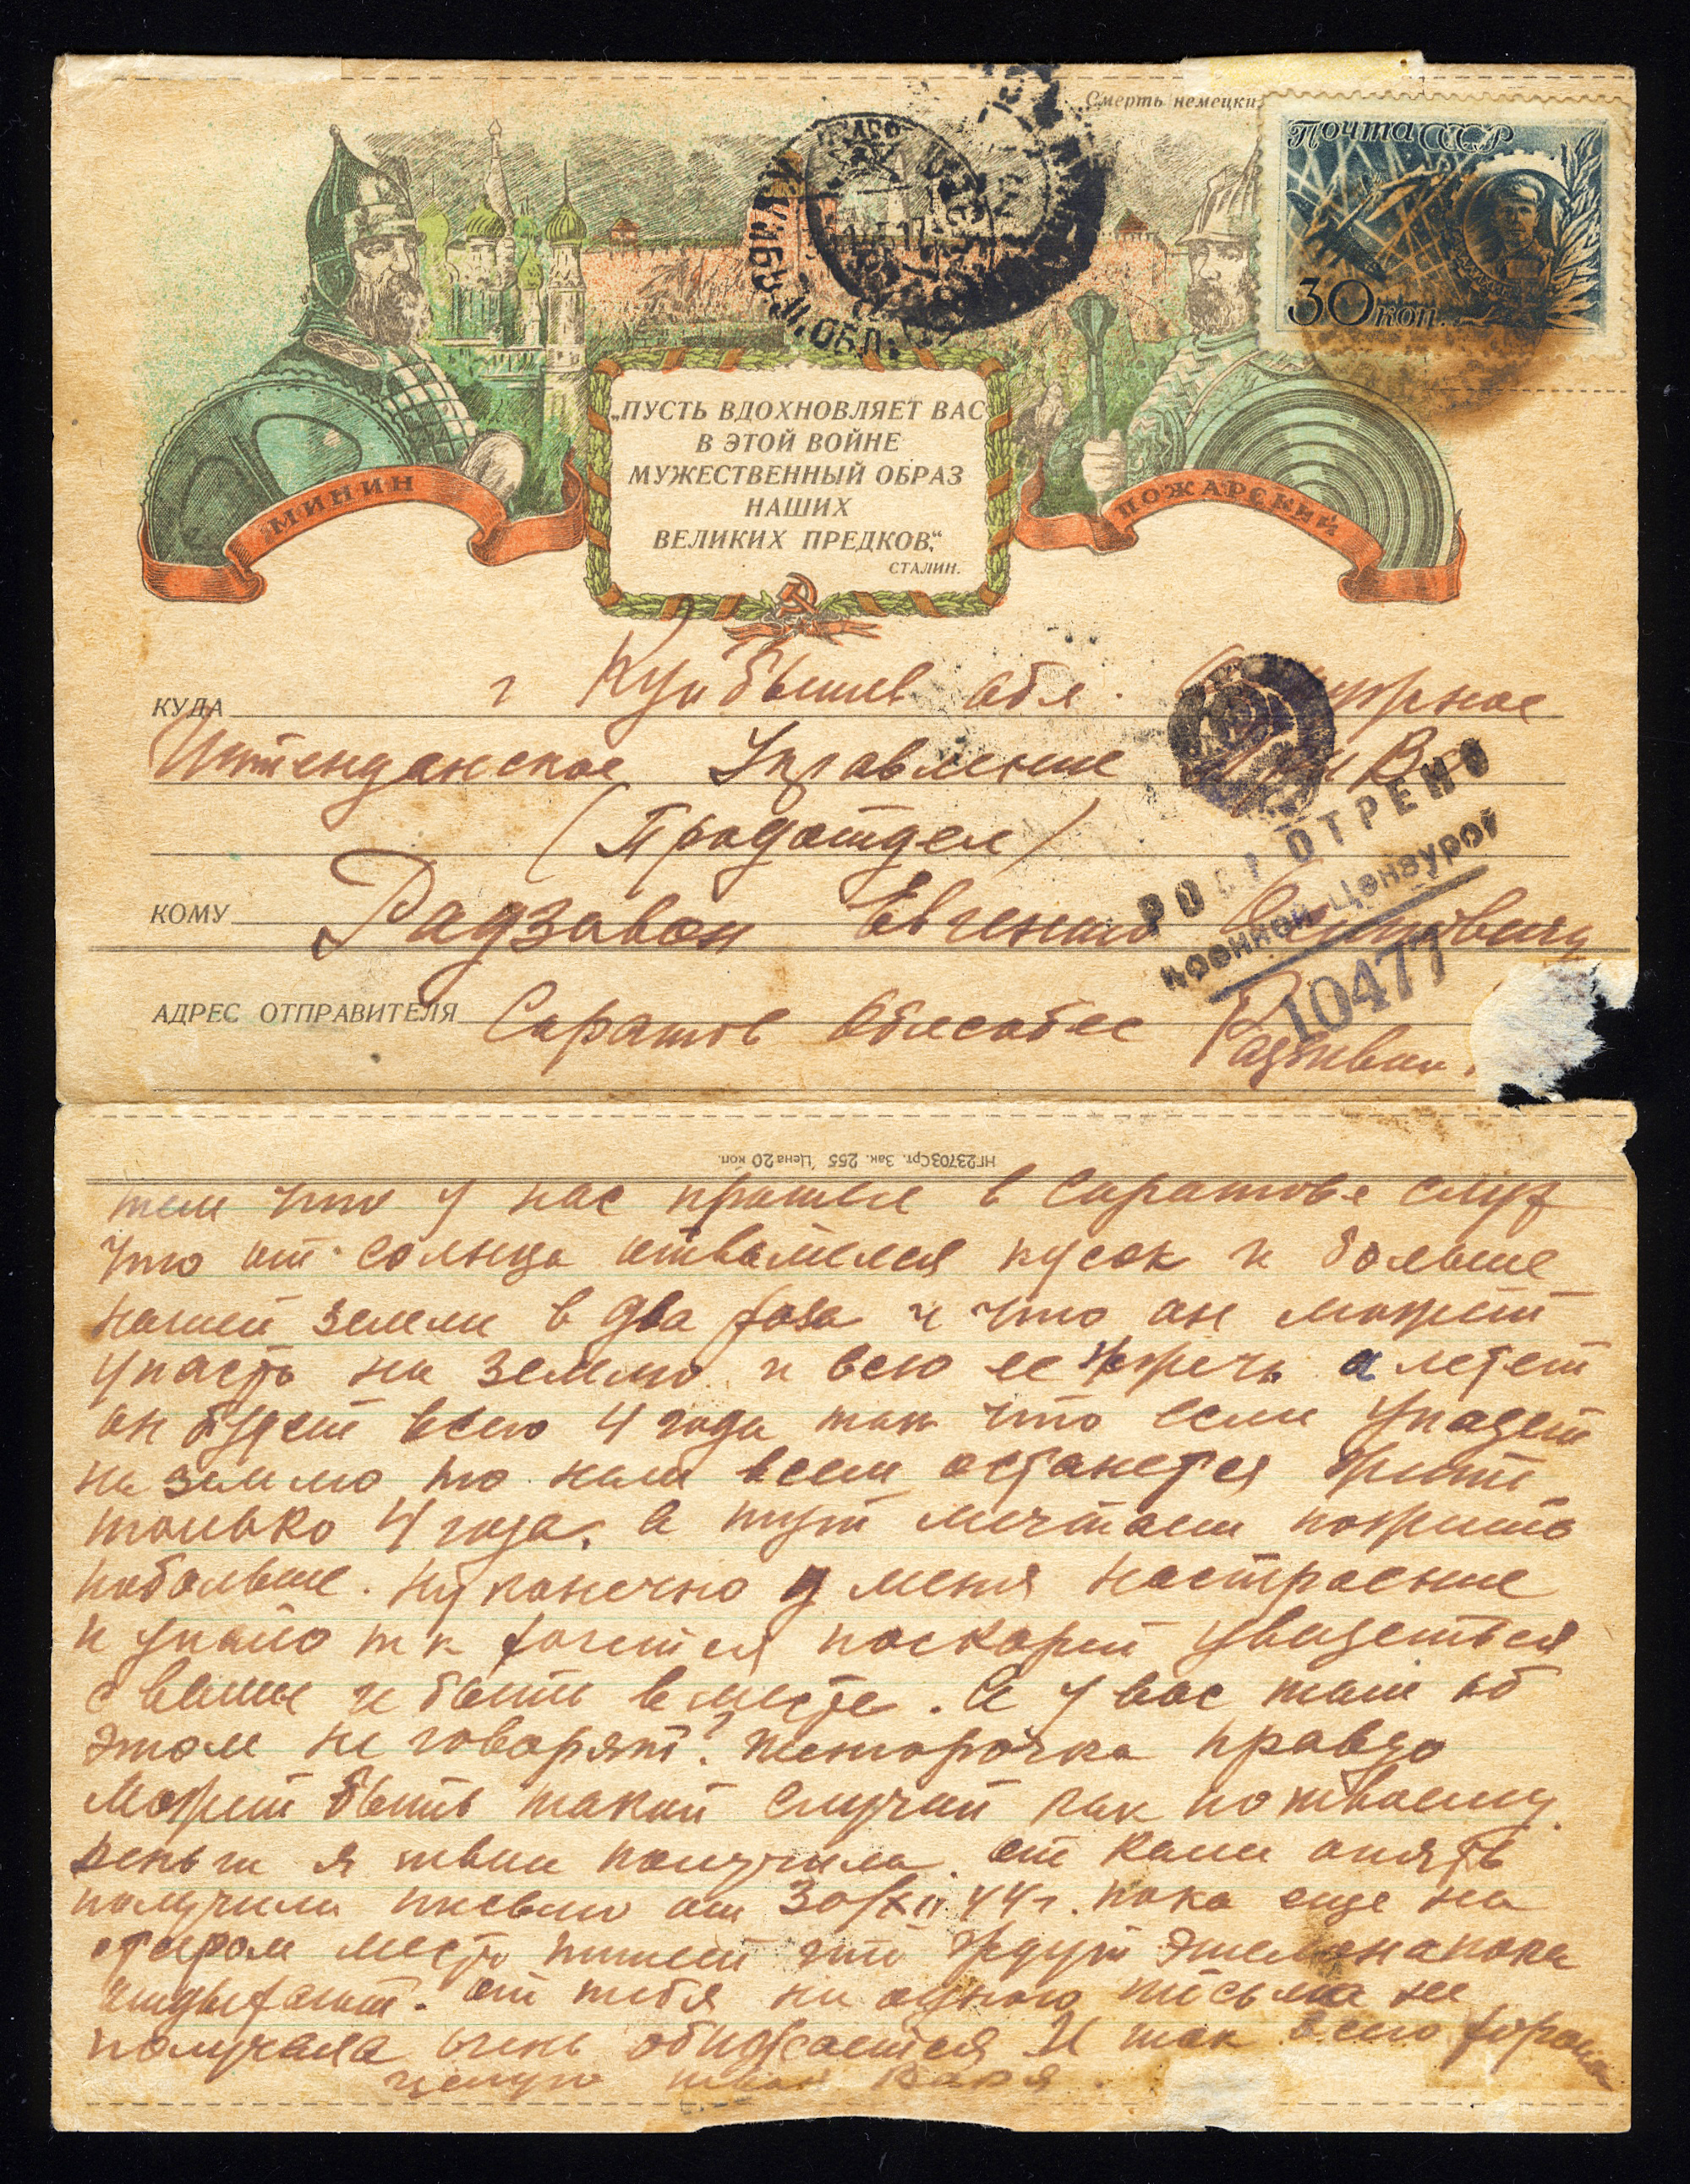 Смерть немецки
Почта СССР
30 коп.
„ПУСТЬ ВДОХНОВЛЯЕТ ВАС
В ЭТОЙ ВОЙНЕ
МУЖЕСТВЕННЫЙ ОБРАЗ
НАШИХ
ВЕЛИКИХ ПРЕДКОВ“.
СТАЛИН.
МИНИН
ПОЖАРСКИЙ
КУДА г Куибышев обл.
Интенданское Управление
(Продотдел)
КОМУ Евгению
ОТРЕНО
военной Цензурой
10477
АДРЕС ОТПРАВИТЕЛЯ Саратов Облсобес
НГ23703 Срт. Зак. 255 Цена 20 коп.
тем что у нас прошел в Саратове слух
что от солнца отвалился кусок и больше
нашей земли в два раза и что онможит
упасть на землю и всю ее а летет
он будет всего 4 года так что если упадет
на землю то нам всем останется жить
только 4 года. а тут мечтаем пожить
побольше. ну конечно у меня настроение
и упало т к хочется поскорей увидеться
с вами и быть вместе. А у вас там об
этом не говорят? правда
Можит быть такой случий как по твоему.
деньги я твои получила. от опять
получили письмо от 30/XII 44 г. пока еще на
старом месте пишет что ждут
отдыхают. от тебя ни одного письма не
получала очень обижается И так всего хороше
целую твоя